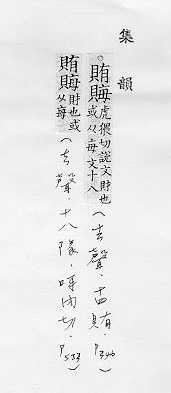 集韻
○賄䝰虎猥切說文財也或从每文十八(去聲.十四賄.P346)
賄䝰財也或从每(去聲.十八隊.呼內切.P533)